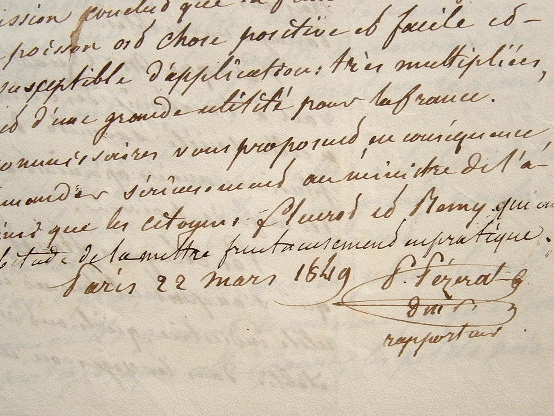 ission conclud que la
poisson est chose positive et facile et
susceptible d'applications très multipliées,
et d'une grande utilité pour la france.
onmissaires vous proposent en conséquence
mander sérieusement au ministre de l'a-
insi que les citoyens et Remy qui on
bitude de la mettre fructueusement en pratique.
Paris 22 mars 1849 P. Pézerat
dm
rapporteur